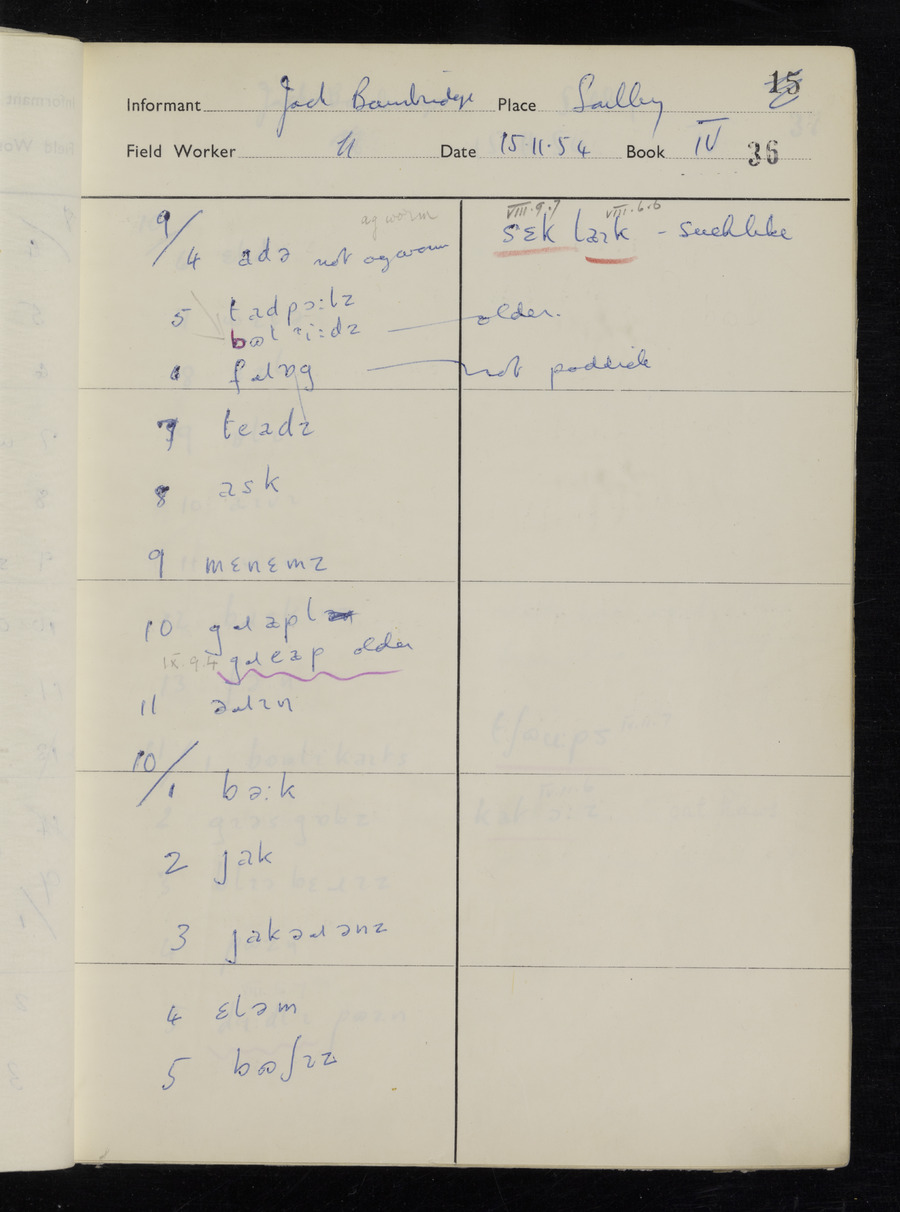 15
Informant Jack Bambridge Place Soulby
Field Worker Date 15.11.54 Book IV 36
9/ agworm
4 adə not agworm
5 tadpɔ:lz
bʊl ʔi:dz older.
6 fɹɒg not paddick
7 teadz
8 ask
9 mɛnɛmz
10 gɹapl
IX.9.4 gɹeəp older
11 əɹɪn
10/
1 bə:k
2 jak
3 jakəɹənz
4 ɛləm
5 bʊʃɪz
VIII.9.7 VIII.6.6
sɛk laɪk - suchlike